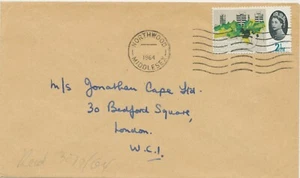 NORTHWOOD
1964
MIDDLESEX
2½D
M/s Jonathan Cape Ltd.
30 Bedford Square,
London.
W.C.1.